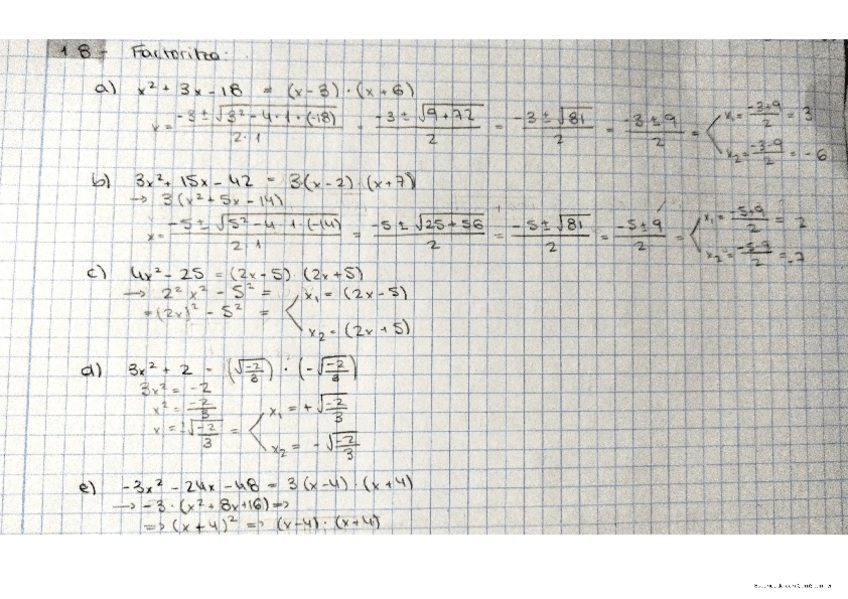 18- Factoritza:
a) x² + 3x - 18 = (x - 3) · (x + 6)
x = (-3 ± √(3² - 4 · 1 · (-18))) / (2 · 1) = (-3 ± √(9 + 72)) / 2 = (-3 ± √81) / 2 = (-3 ± 9) / 2 = < x₁ = (-3+9)/2 = 3
x₂ = (-3-9)/2 = -6
b) 3x² + 15x - 42 = 3(x - 2) · (x + 7)
→ 3(x² + 5x - 14)
x = (-5 ± √(5² - 4 · 1 · (-14))) / (2 · 1) = (-5 ± √(25 + 56)) / 2 = (-5 ± √81) / 2 = (-5 ± 9) / 2 = < x₁ = (-5+9)/2 = 2
x₂ = (-5-9)/2 = -7
c) 4x² - 25 = (2x - 5) · (2x + 5)
→ 2² x² - 5² = < x₁ = (2x - 5)
= (2x)² - 5² = x₂ = (2x + 5)
d) 3x² + 2 = (√(-2/3)) · (-√(-2/3))
3x² = -2
x² = -2/3
x = ±√(-2/3) = < x₁ = +√(-2/3)
x₂ = -√(-2/3)
e) -3x² - 24x - 48 = 3(x - 4) · (x + 4)
→ -3 · (x² + 8x + 16) ⇒
⇒ (x + 4)² ⇒ (x - 4) · (x + 4)